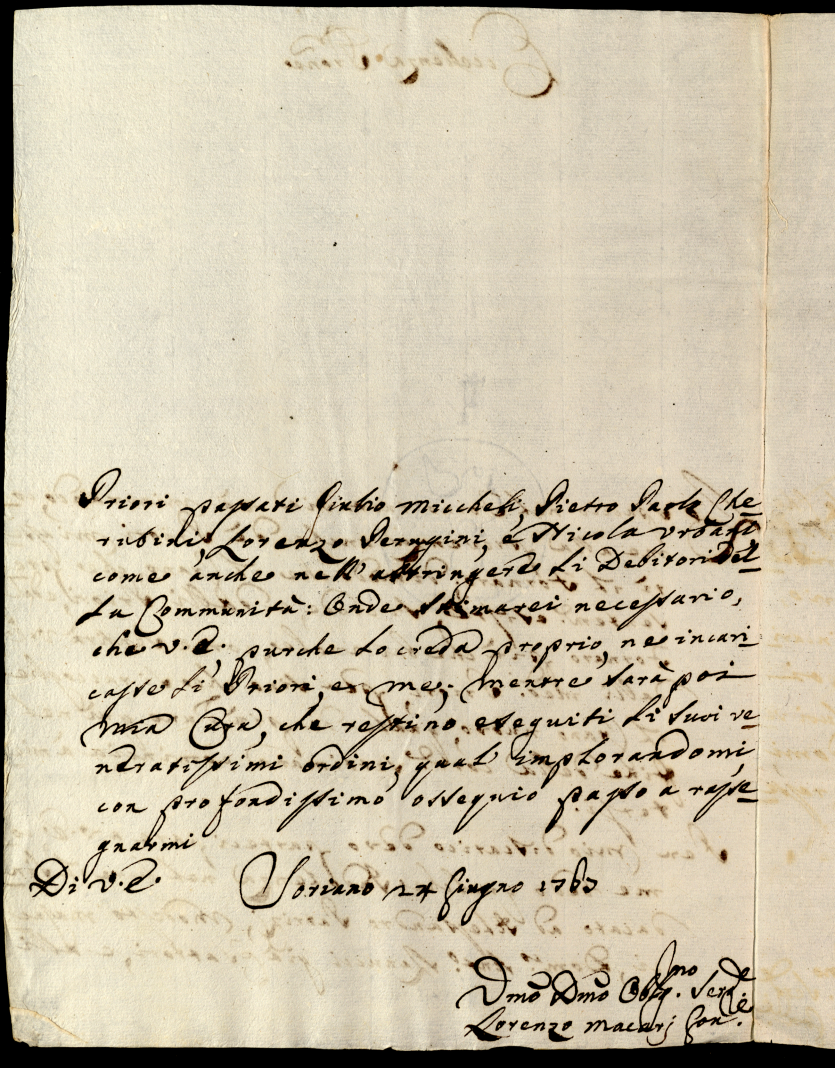 Priori passati Giulio Miccheli, Pietro Paolo Che=
rubini, Lorenzo Perugini, e Nicola Urbani
come anche nell' astringere li Debitori del=
la Communità: Onde stimarei necessario,
che V.E., purche lo creda proprio, ne incari=
casse li Priori, e me; mentre sarà poi
mia Cura, che restino eseguiti li suoi ve=
neratissimi ordini, quali implorandomi
con profondissimo ossequio passo a rasse=
gnarmi
Di V.E. Soriano 24 Giugno 1763
Dmo Dmo Obbl.mo Ser.
Lorenzo Macarj